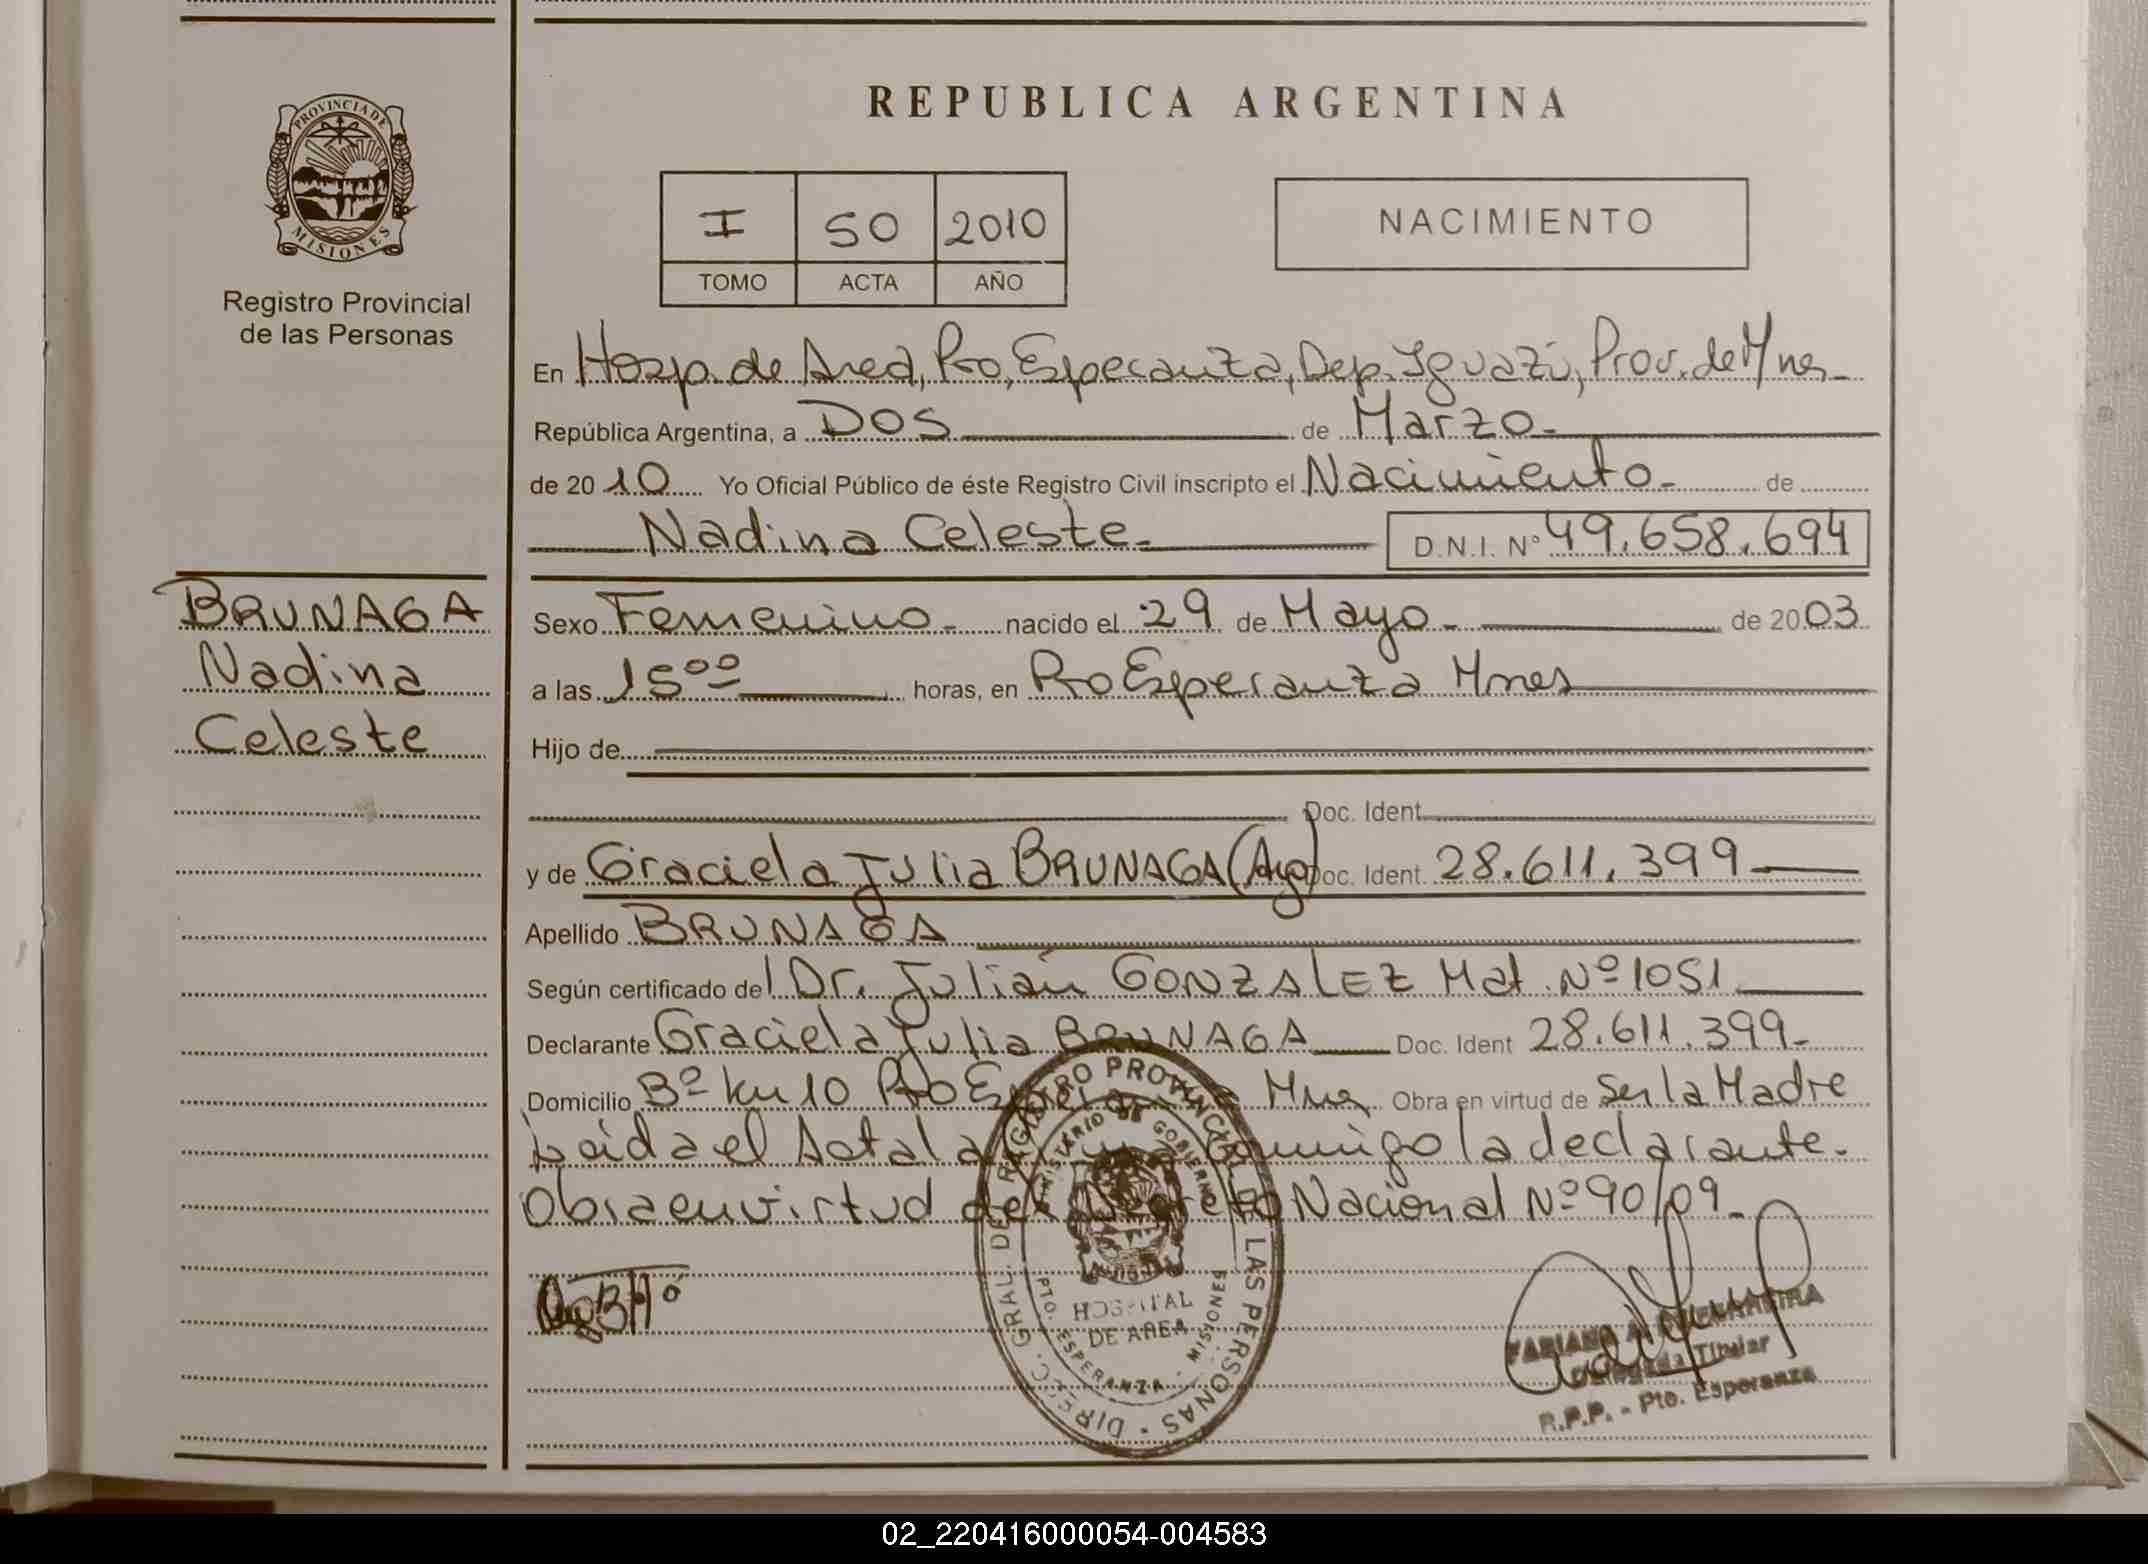 PROVINCIA DE
MISIONES
Registro Provincial
de las Personas
REPUBLICA ARGENTINA
I 50 2010
TOMO ACTA AÑO
NACIMIENTO
En Hosp. de Area, Pto, Esperanza, Dep. Iguazú, Prov. de Mnes
República Argentina, a DOS de Marzo
de 2010 Yo Oficial Público de éste Registro Civil inscripto el Nacimiento de
Nadina Celeste D.N.I. Nº 49.658.694
BRUNAGA
Nadina
Celeste
Sexo Femenino nacido el 29 de Mayo de 2003
a las 15ºº horas, en Pto Esperanza Mnes
Hijo de
Doc. Ident.
y de Graciela Julia BRUNAGA (Arg) Doc. Ident. 28.611.399
Apellido BRUNAGA
Según certificado del Dr. Julián GONZALEZ Mat. Nº 1051
Declarante Graciela Julia BRUNAGA Doc. Ident 28.611.399
Domicilio Bº Km 10 Pto Esperanza Mnes Obra en virtud de ser la Madre
Leida el Acta la conmigo la declarante.
Obra en virtud del Decreto Nacional Nº 90/09
DIRECC. GRAL. DE REGISTRO PROVINCIAL DE LAS PERSONAS
MINISTERIO DE GOBIERNO
HOSPITAL
DE AREA
PTO. ESPERANZA - MISIONES
Delegada Titular
R.P.P. - Pto. Esperanza
02_220416000054-004583